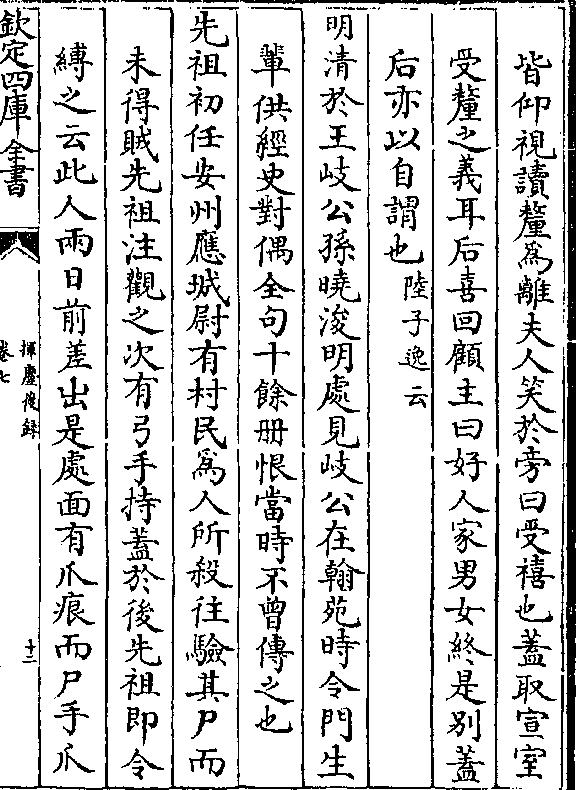 皆仰視讀釐為離夫人笑於旁曰受禧也蓋取宣室
受釐之義耳后喜回顧主曰好人家男女終是别蓋
后亦以自謂也陸子逸云
明清於王岐公孫曉浚明處見岐公在翰苑時令門生
輩供經史對偶全句十餘册恨當時不曾傳之也
先祖初任安州應城尉有村民為人所殺往驗其尸而
未得賊先祖注觀之次有弓手持蓋於後先祖即令
縛之云此人兩日前差出是處面有爪痕而尸手爪
欽定四庫全書
揮麈後録
卷七
十三